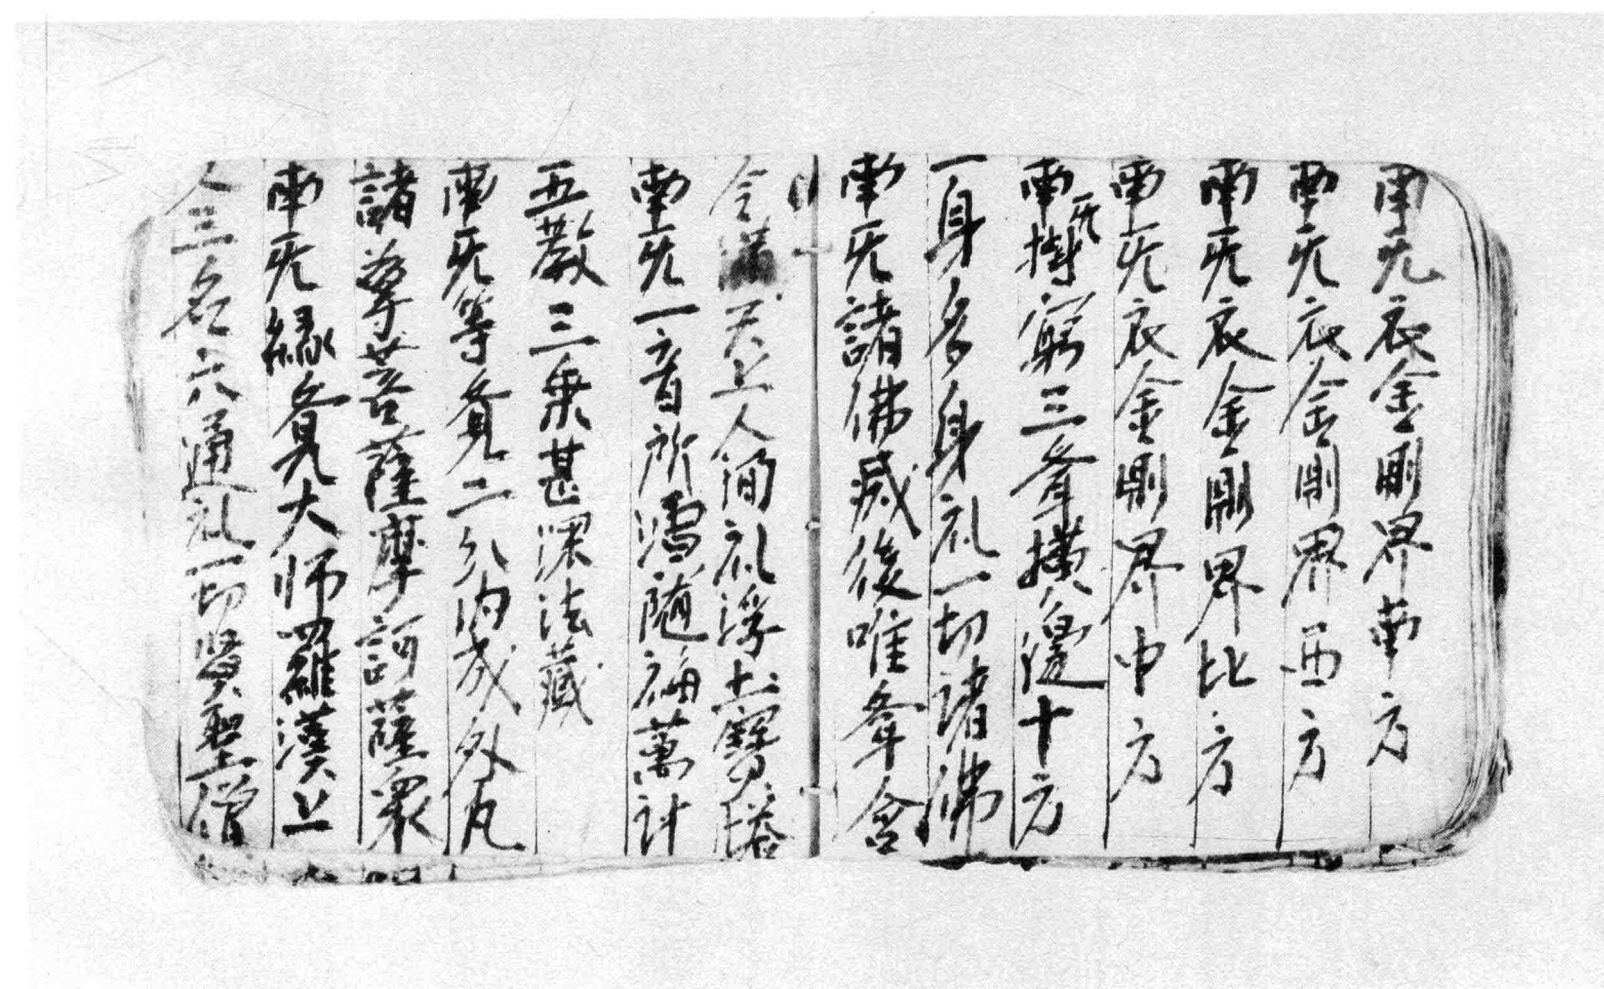 南无衣金剛界南方
南无衣金剛界西方
南无衣金剛界比方
南无衣金剛界中方
南无樹窮三奪横邊十方
一身多身礼一切諸佛
南无諸佛威後唯奪含
令滿天上人間礼浮土寶塔
南无一音所演随福萬計
五教三乗甚深法藏
南无等覓二分内成外凡
諸尊菩薩摩訶薩衆
南无緣覓大师羅漢上
人三名六通礼一切賢聖僧